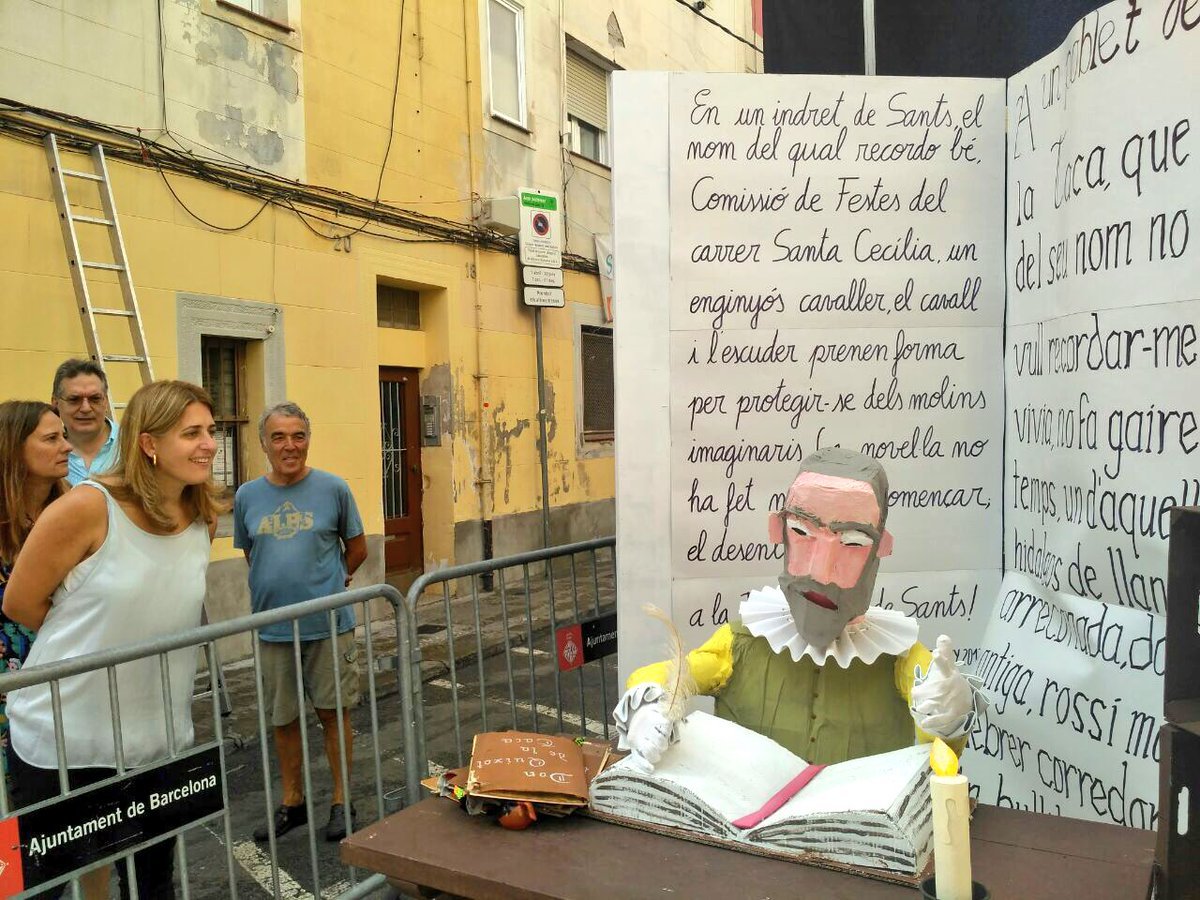 En un indret de Sants, el
nom del qual recordo bé,
Comissió de Festes del
carrer Santa Cecília, un
enginyós cavaller, el cavall
i l'escuder prenen forma
per protegir-se dels molins
imaginaris. La novel·la no
ha fet començar,
el
a la de Sants!
A un poblet de
la Taca, que
del seu nom no
vull recordar-me
vivia, no fa gaire
temps, un d'aquell
hidalgos de llan
arreconada,
antiga, rossí
corredor
20
18
ALPS
Don
Quixot
de la
Taca
Ajuntament de Barcelona
Ajuntame